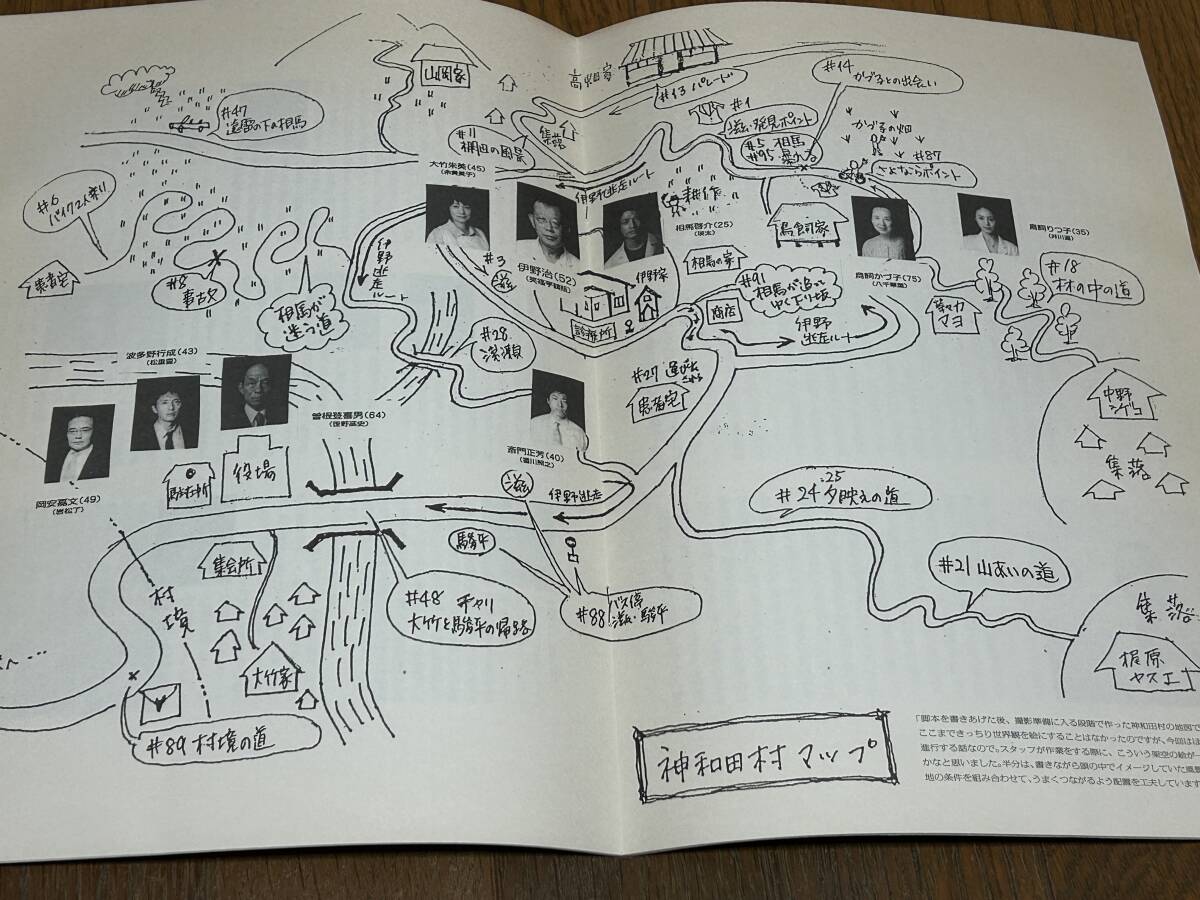 山岡家
高畑家
#13 パレード
#14
かづ子との出会い
#47
遠雷の下の相馬
#11
棚田の風景
集落
#1
滋い発見ポイント
#5 相馬
#95 暴れる
かづ子の畑
#87
さよならポイント
#6
バイク2人乗り
大竹朱美(45)
(余貴美子)
伊野逃走ルート
耕作
伊野治(52)
(笑福亭鶴瓶)
相馬啓介(25)
(瑛太)
鳥飼家
鳥飼りつ子(35)
(井川遥)
鳥飼かづ子(75)
(八千草薫)
患者宅
#8
事故
相馬が
迷う道
伊野
逃走
ルート
#3
滋
診療所
伊野家
相馬の家
商店
#91
相馬が追って
ゆく下り坂
伊野
逃走ルート
等々力
マヨ
#18
林の中の道
波多野行成(43)
(松重豊)
#28
渓瀬
#27
患者宅
中野
シゲコ
集落
岡安嘉文(49)
(岩松了)
曽根登喜男(64)
(笹野高史)
駐在所
役場
斎門正芳(40)
(香川照之)
滋
伊野逃走
#24.25 夕映えの道
#21 山あいの道
集会所
村境
#48 チャリ
大竹と駿平の帰路
駿平
バス停
#88
大竹家
#89 村境の道
集落
梶原
ヤスエ
神和田村マップ
「脚本を書きあげた後、撮影準備に入る段階で作った神和田村の地図で
ここまできっちり世界観を絵にすることはなかったのですが、今回はほ
進行する話なので。スタッフが作業をする際に、こういう架空の絵が一
かなと思いました。半分は、書きながら頭の中でイメージしていた風景
地の条件を組み合わせて、うまくつながるよう配置を工夫しています